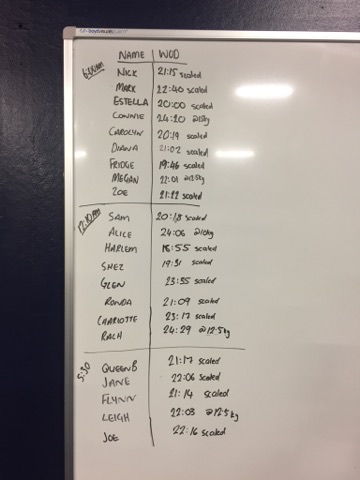 NAME WOD
6:00AM
NICK 21:15 scaled
MARK 22:40 scaled
ESTELLA 20:00 scaled
CONNIE 24:20 @15kg
CAROLYN 20:19 scaled
DIANA 21:02 scaled
FRIDGE 19:46 scaled
MEGAN 22:01 @12.5kg
ZOE 21:22 scaled
SAM 20:18 scaled
ALICE 24:06 @10kg
HARLEM 18:55 scaled
SHEZ 19:31 scaled
GLEN 23:55 scaled
RONDA 21:09 scaled
CHARLOTTE 23:17 scaled
RACH 24:29 @12.5kg
5:30
QUEENB 21:17 scaled
JANE 22:06 scaled
FLYNN 21:14 scaled
LEIGH 22:03 @12.5kg
JOE 22:16 scaled